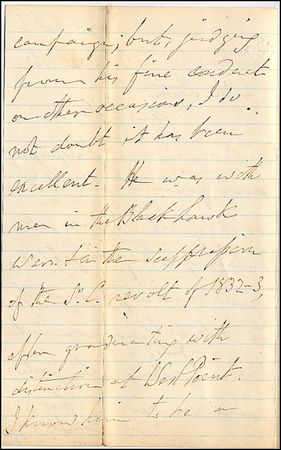 campaign; but, judging
from his fine conduct
on other occasions, I do
not doubt it has been
excellent. He was with
men in the Black Hawk
War & in the suppression
of the S. C. revolt of 1832-3,
after graduating with
distinction at West Point.
I know him to be a